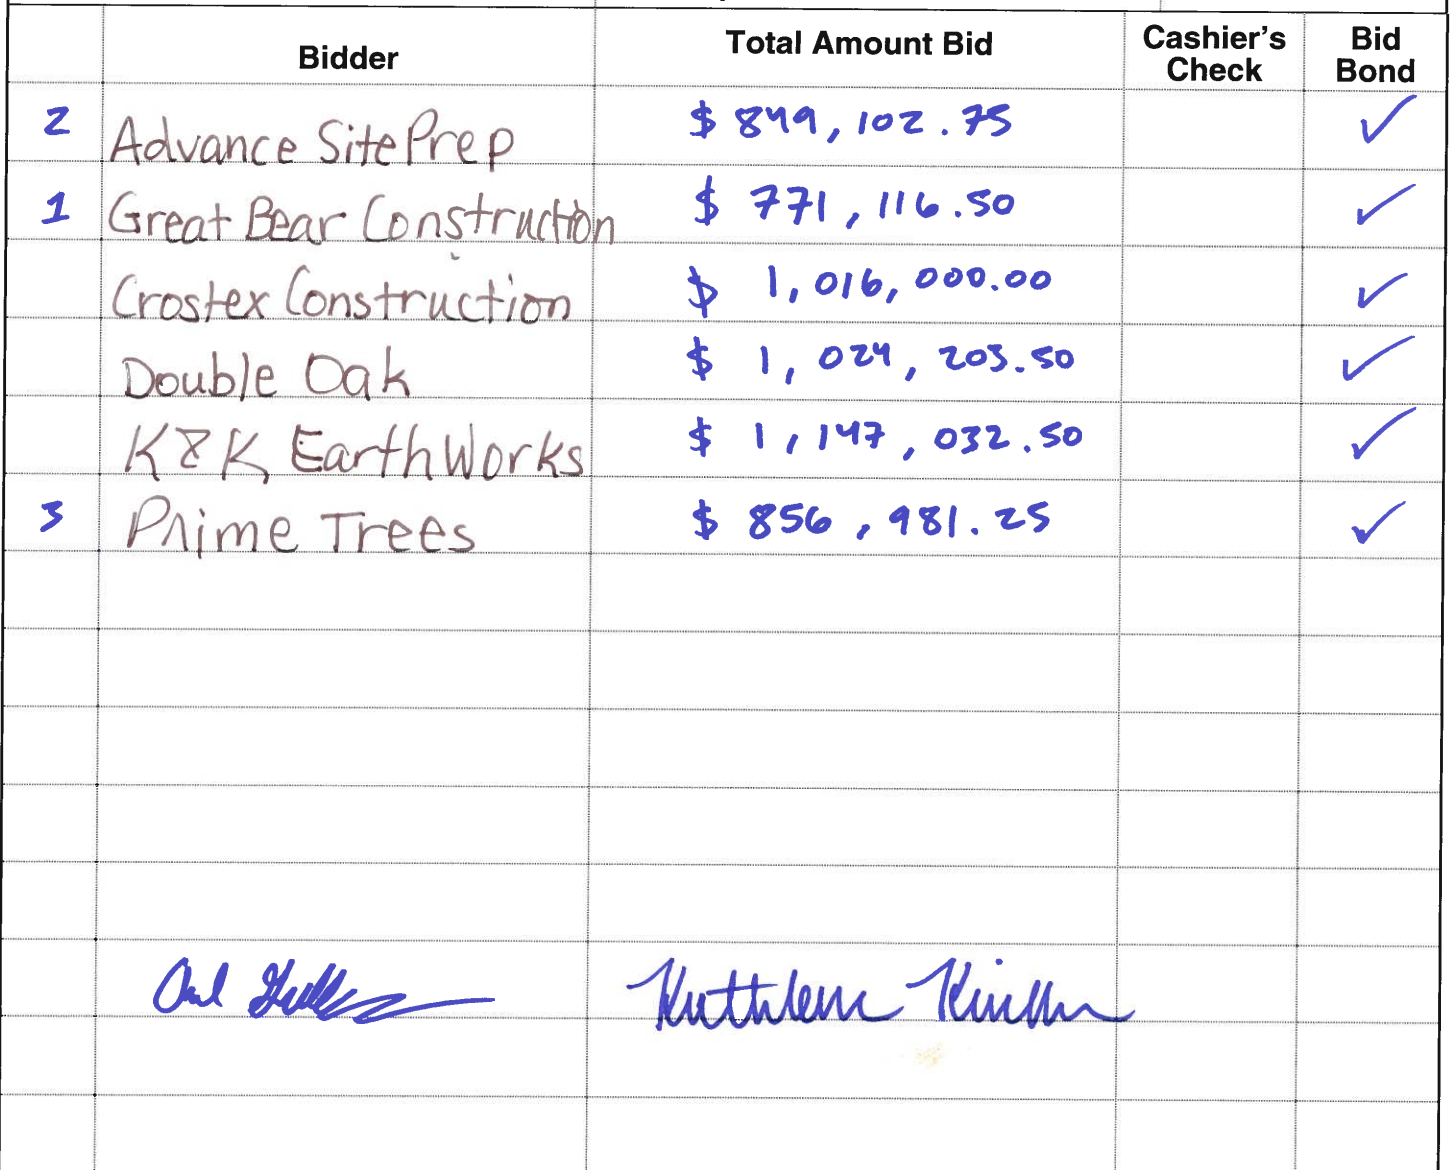 Bidder Total Amount Bid Cashier's Check Bid Bond
2 Advance Site Prep $ 849,102.75 ✓
1 Great Bear Construction $ 771,116.50 ✓
Crostex Construction $ 1,016,000.00 ✓
Double Oak $ 1,024,203.50 ✓
K&K EarthWorks $ 1,147,032.50 ✓
3 Prime Trees $ 856,981.25 ✓